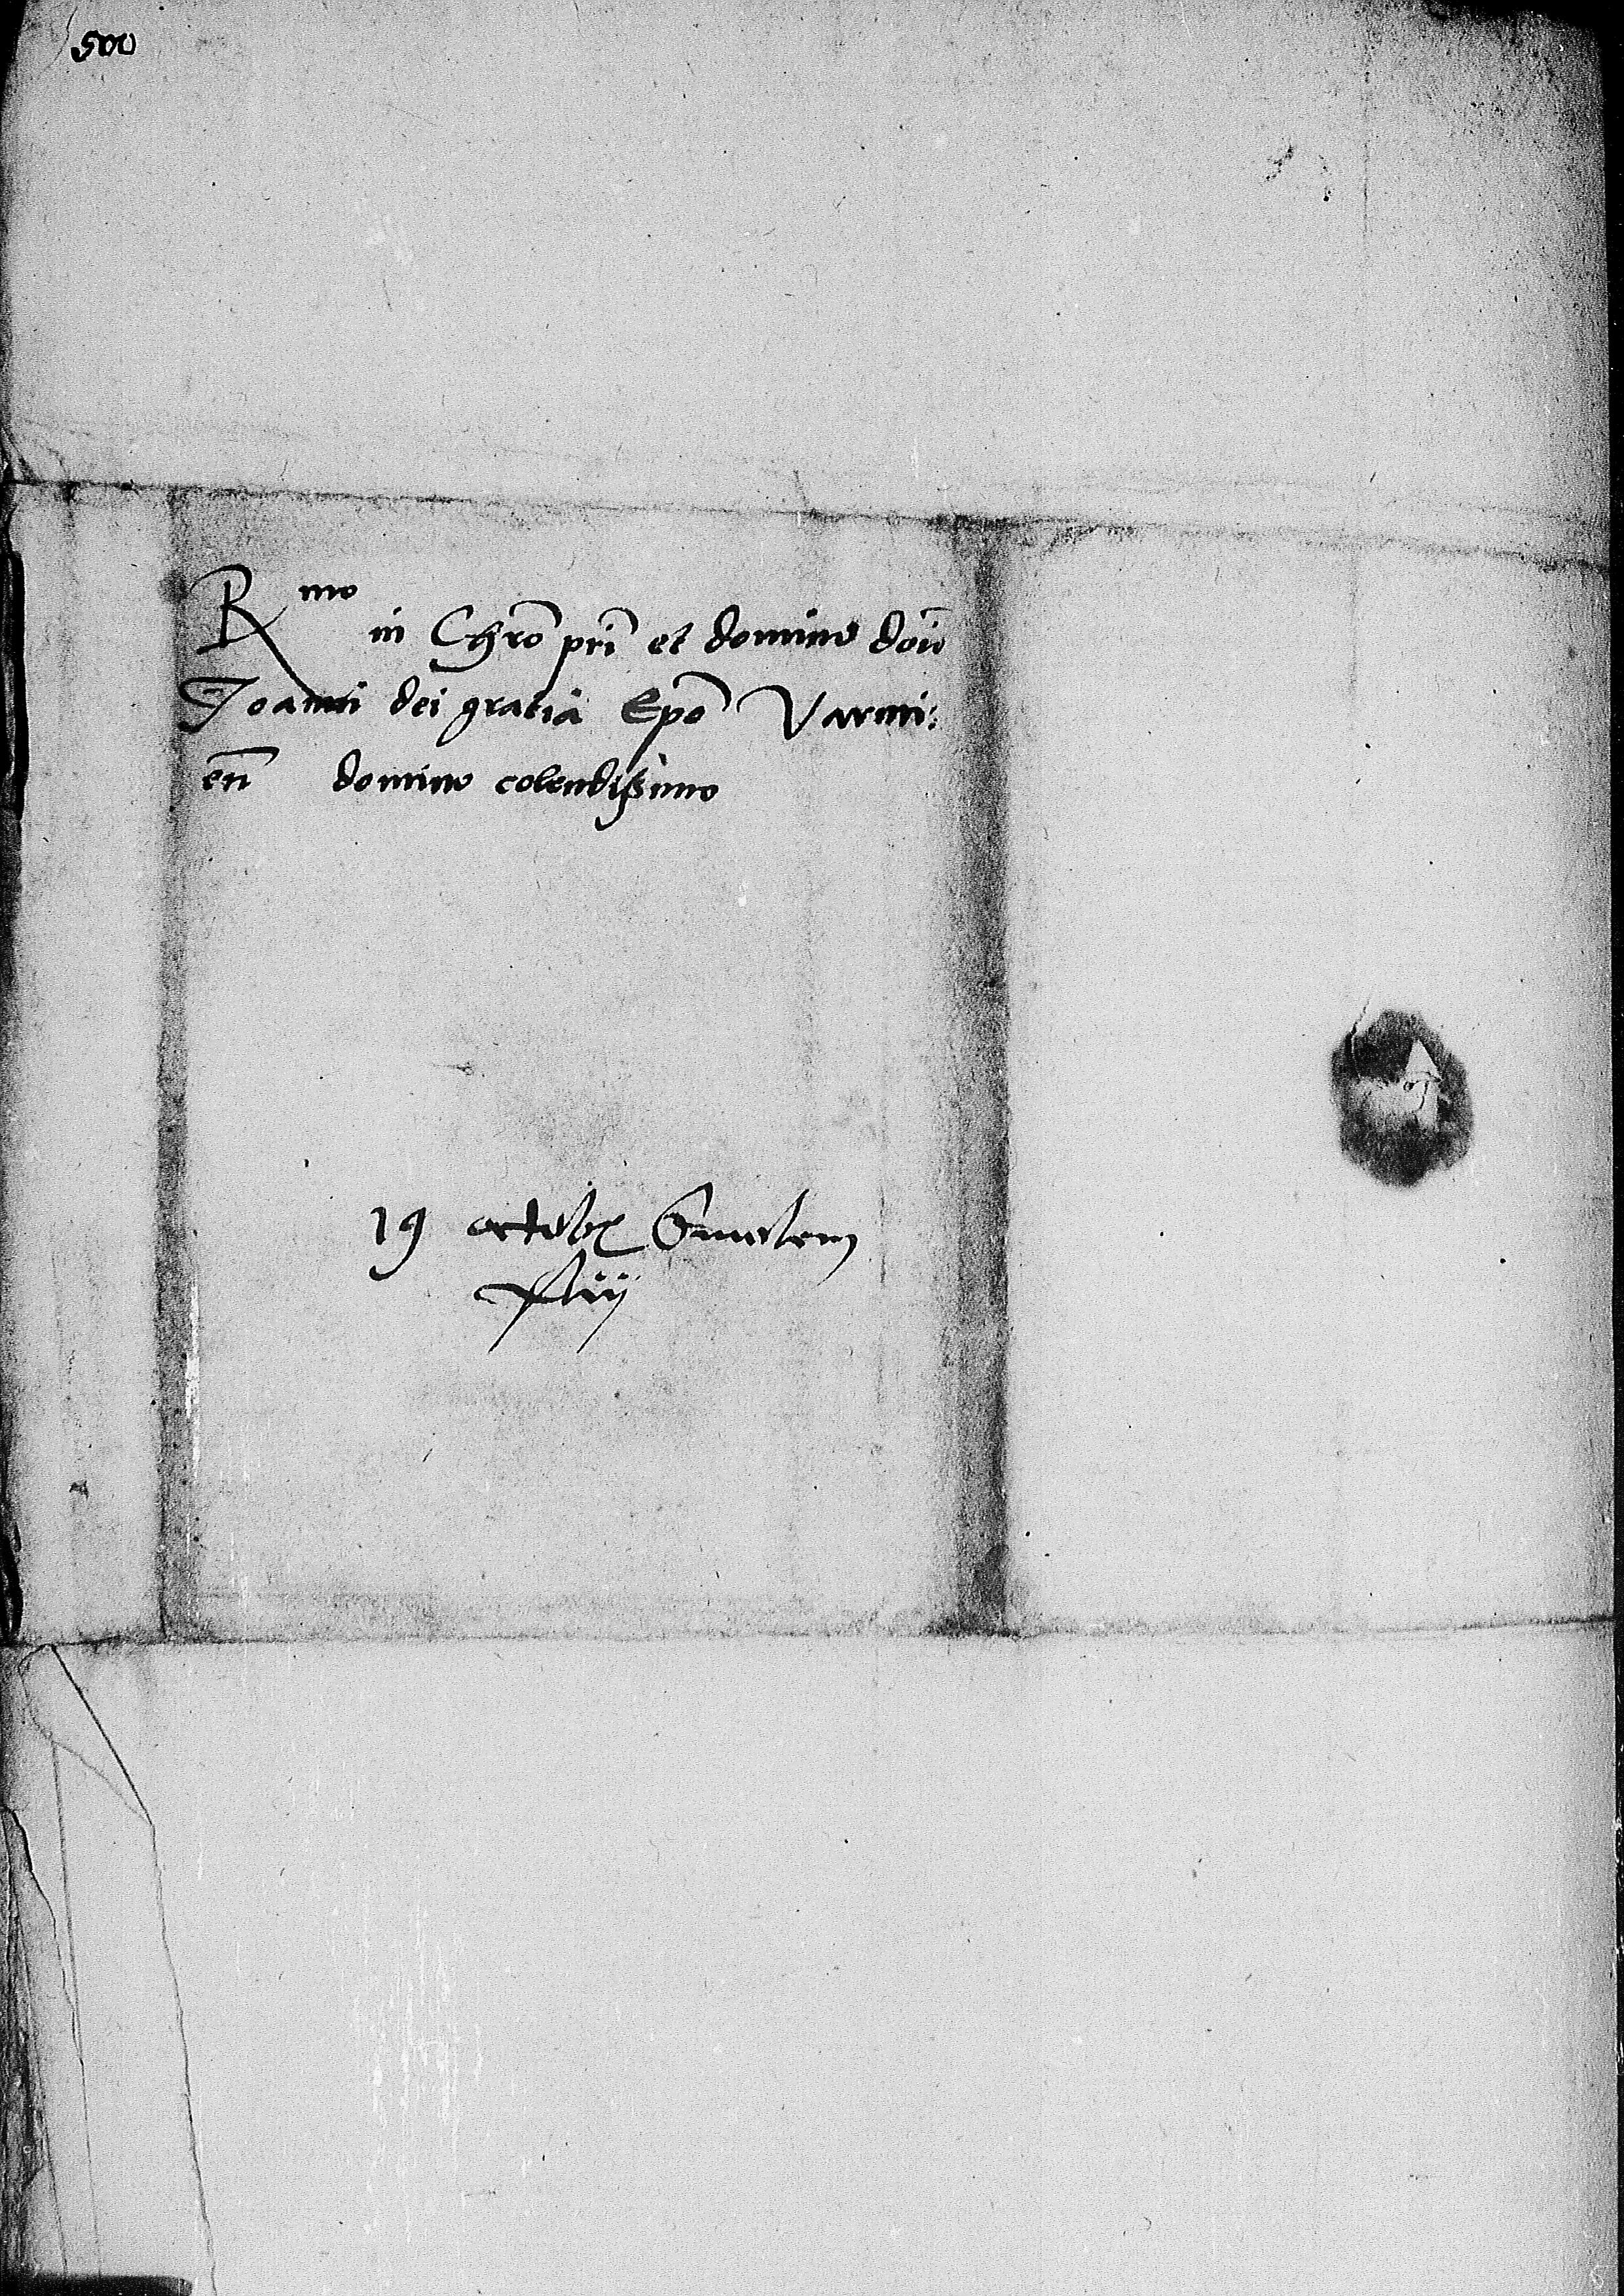 500
R mo
in Chro pri et domino doio
Joanni dei gratia Epo Varmi:
en domino colendissimo
19 octobr